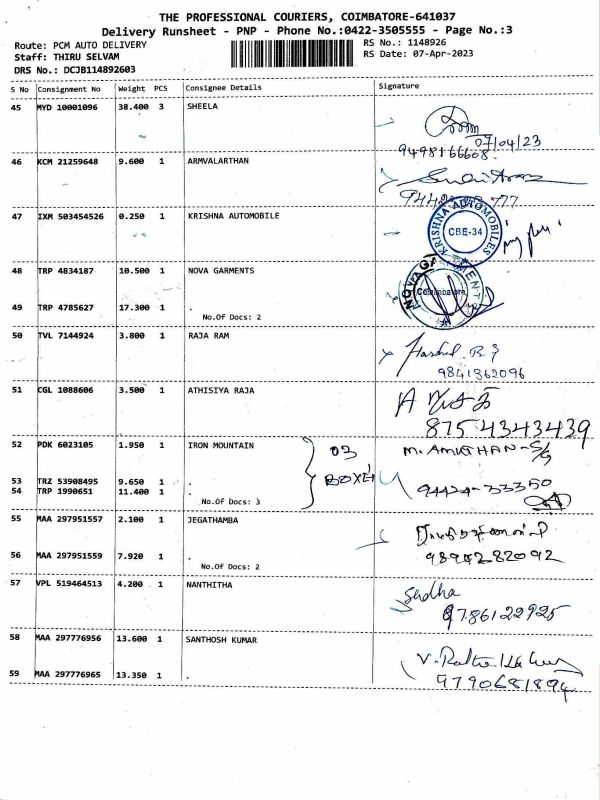 THE PROFESSIONAL COURIERS, COIMBATORE-641037
Delivery Runsheet - PNP - Phone No.:0422-3505555 - Page No.:3
Route: PCM AUTO DELIVERY
RS No.: 1148926
Staff: THIRU SELVAM
RS Date: 07-Apr-2023
DRS No.: DCJB114892603
S No Consignment No Weight PCS Consignee Details Signature
45 MYD 10001096 38.400 3 SHEELA
07/04/23
9498166608
46 KCM 21259648 9.600 1 ARMVALARTHAN
47 IXM 503454526 0.250 1 KRISHNA AUTOMOBILE
KRISHNA AUTOMOBILES
CBE-34
48 TRP 4834187 10.500 1 NOVA GARMENTS
NOVA GARMENTS
Coimbatore
49 TRP 4785627 17.300 1 .
No.Of Docs: 2
50 TVL 7144924 3.800 1 RAJA RAM
9841362096
51 CGL 1088606 3.500 1 ATHISIYA RAJA
8754343439
52 PDK 6023105 1.950 1 IRON MOUNTAIN
03 BOXES
M. AMUTHAN-S/G
53 TRZ 53908495 9.650 1 .
94424-33350
54 TRP 1990651 11.400 1 .
No.Of Docs: 3
55 MAA 297951557 2.100 1 JEGATHAMBA
56 MAA 297951559 7.920 1 .
9894282092
No.Of Docs: 2
57 VPL 519464513 4.200 1 NANTHITHA
Sudha
9786122925
58 MAA 297776956 13.600 1 SANTHOSH KUMAR
59 MAA 297776965 13.350 1 .
9790681894